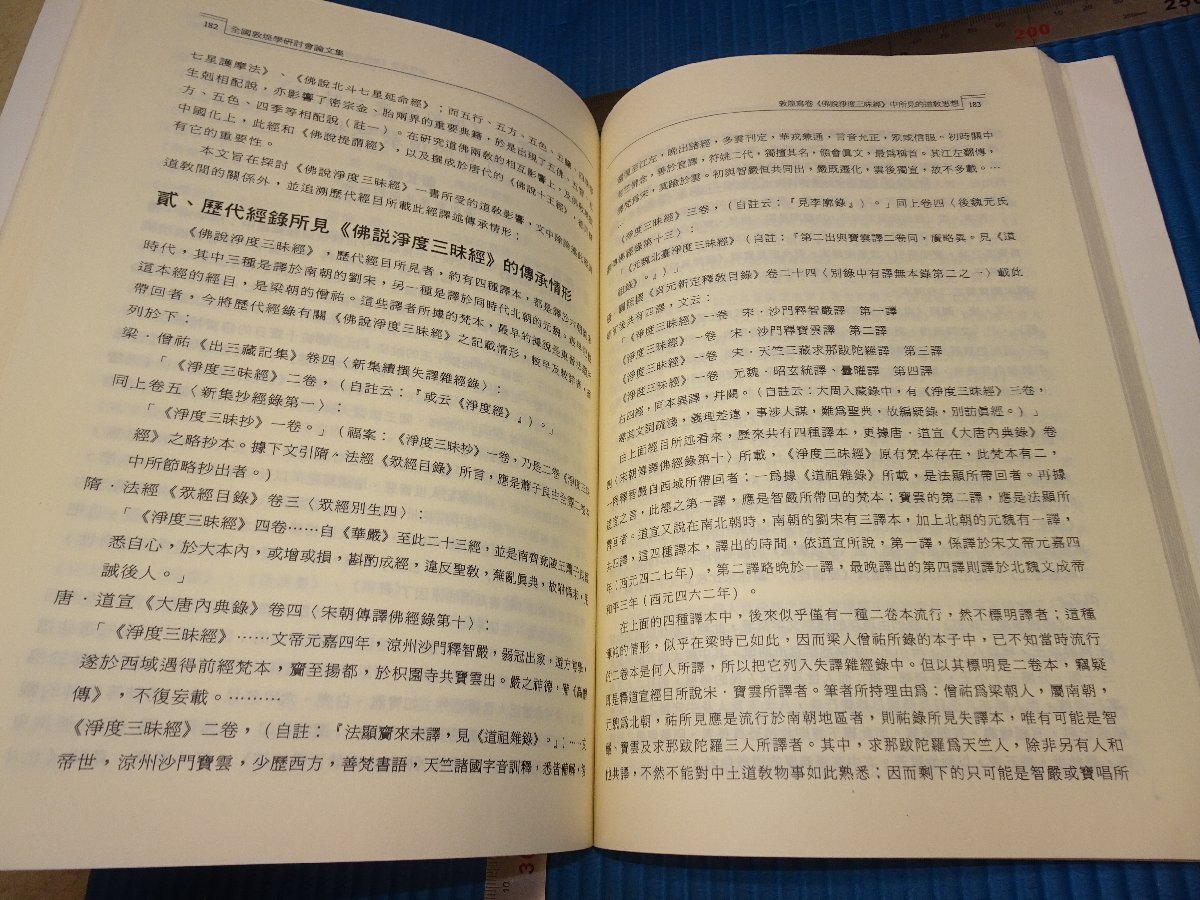 182 全國敦煌學研討會論文集
七星護摩法》、《佛說北斗七星延命經》；而五行、五方、五色、五臟、
生剋相配說，亦影響了密宗金、胎兩界的重要典籍，於是出現了五佛、五智、
方、五色、四季等相配說（註一）。在研究道佛兩教的相互影響上，及佛教
中國化上，此經和《佛說提謂經》，以及撰成於唐代的《佛說十王經》，
有它的重要性。
本文旨在探討《佛說淨度三昧經》一書所受的道教影響，文中除論述此經與
道教間的關係外，並追溯歷代經目所載此經譯述傳承情形：
貳、歷代經錄所見《佛說淨度三昧經》的傳承情形
《佛說淨度三昧經》，歷代經目所見者，約有四種譯本，都是譯於六朝
時代，其中三種是譯於南朝的劉宋，另一種是譯於同時代北朝的元魏。
這本經的經目，是梁朝的僧祐。這些譯者所據的梵本，最早的
帶回者，今將歷代經錄有關《佛說淨度三昧經》之記載情形，
列於下：
梁．僧祐《出三藏記集》卷四〈新集續撰失譯雜經錄〉：
「《淨度三昧經》二卷，（自註云：『或云《淨度經》』）。」
同上卷五〈新集抄經錄第一〉：
「《淨度三昧抄》一卷。」（福案：《淨度三昧抄》一卷，乃是二卷《淨度三昧
經》之略抄本。據下文引隋．法經《眾經目錄》所旨，應是蕭子良由
中所節略抄出者。）
隋．法經《眾經目錄》卷三〈眾經別生四〉：
「《淨度三昧經》四卷……自《華嚴》至此二十三經，並是南齊竟陵王蕭子良
悉自心，於大本內，或增或損，斟酌成經，違反聖教，蕪亂真典，故附偽末，
誡後人。」
唐．道宣《大唐內典錄》卷四〈宋朝傳譯佛經錄第十〉：
「《淨度三昧經》……文帝元嘉四年，涼州沙門釋智嚴，弱冠出家，遠方官學，
遂於西域遇得前經梵本，齎至揚都，於枳園寺共寶雲出。嚴之神德，
傳》，不復妄載。………
《淨度三昧經》二卷，（自註：『法顯齎來未譯，見《道祖雜錄》。』：…文
帝世，涼州沙門寶雲，少歷西方，善梵書語，天竺諸國字音訓釋，悉皆備解，
敦煌寫卷《佛說淨度三昧經》中所見的道教思想 183
還至江左，晚出諸經，多雲刊定，華戎兼通，言音允正，眾咸信服。初時關中
竺佛念，善於宣譯，符姚二代，獨擅其名，領會真文，最為稱首。其江左翻傳，
譯梵為宋，莫踰於雲。初與智嚴恒共同出，嚴既遷化，雲後獨宣，故不多載。…
《淨度三昧經》三卷，（自註云：『見李廓錄』）。」同上卷四〈後魏元氏
佛經錄第十三〉：
「《元魏北臺淨度三昧經》（自註：『第二出與寶雲譯二卷同，廣略異。見《道
祖錄》。』）」
《貞元新定釋教目錄》卷二十四〈別錄中有譯無本錄第二之一〉載此
經前後共有四譯，文云：
「《淨度三昧經》一卷 宋．沙門釋智嚴譯 第一譯
《淨度三昧經》一卷 宋．沙門釋寶雲譯 第二譯
《淨度三昧經》一卷 宋．天竺三藏求那跋陀羅譯 第三譯
《淨度三昧經》一卷 元魏．昭玄統譯、曇曜譯 第四譯
右四經，同本異譯，并闕。（自註云：大周入藏錄中，有《淨度三昧經》三卷，
尋其文詞疏淺，義理差違，事涉人謀，難為聖典，故編疑錄，別訪真經。）」
由上面經目所述看來，歷來共有四種譯本，更據唐．道宣《大唐內典錄》卷
四〈宋朝傳譯佛經錄第十〉所載，《淨度三昧經》原有梵本存在，此梵本有二，
一為釋智嚴自西域所帶回者；一為據《道祖雜錄》所載，是法顯所帶回者。再據
道宣之言，此經之第一譯，應是智嚴所帶回的梵本；寶雲的第二譯，應是法顯所
帶回者。道宣又說在南北朝時，南朝的劉宋有三譯本，加上北朝的元魏有一譯，
共四譯，這四種譯本，譯出的時間，依道宣所說，第一譯，係譯於宋文帝元嘉四
年（西元四二七年），第二譯略晚於一譯，最晚譯出的第四譯則譯於北魏文成帝
和平三年（西元四六二年）。
在上面的四種譯本中，後來似乎僅有一種二卷本流行，然不標明譯者；這種
單本的情形，似乎在梁時已如此，因而梁人僧祐所錄的本子中，已不知當時流行
的二卷本是何人所譯，所以把它列入失譯雜經錄中。但以其標明是二卷本，竊疑
就是釋道宣經目所說宋．寶雲所譯者。筆者所持理由為：僧祐為梁朝人，屬南朝，
元魏為北朝，祐所見應是流行於南朝地區者，則祐錄所見失譯本，唯有可能是智
嚴、寶雲及求那跋陀羅三人所譯者。其中，求那跋陀羅為天竺人，除非另有人和
他共譯，不然不能對中土道教物事如此熟悉；因而剩下的只可能是智嚴或寶唱所
200
250